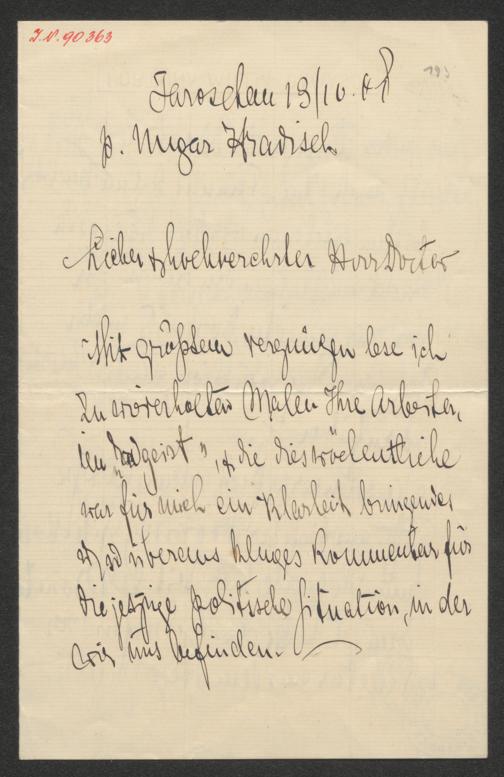 I.N. 90363
193
Jaroschau 19/10.
p. Ungar Hradisch
Lieber & hochverehrter Herr Doctor
Mit größtem Vergnügen lese ich
zu wiederholten Malen Ihre Arbeiten
im " geist", & die dieswöchentliche
war für mich ein Klarheit bringendes
& überaus kluges Kommentar für
die jetzige politische Situation, in der
wir uns befinden.